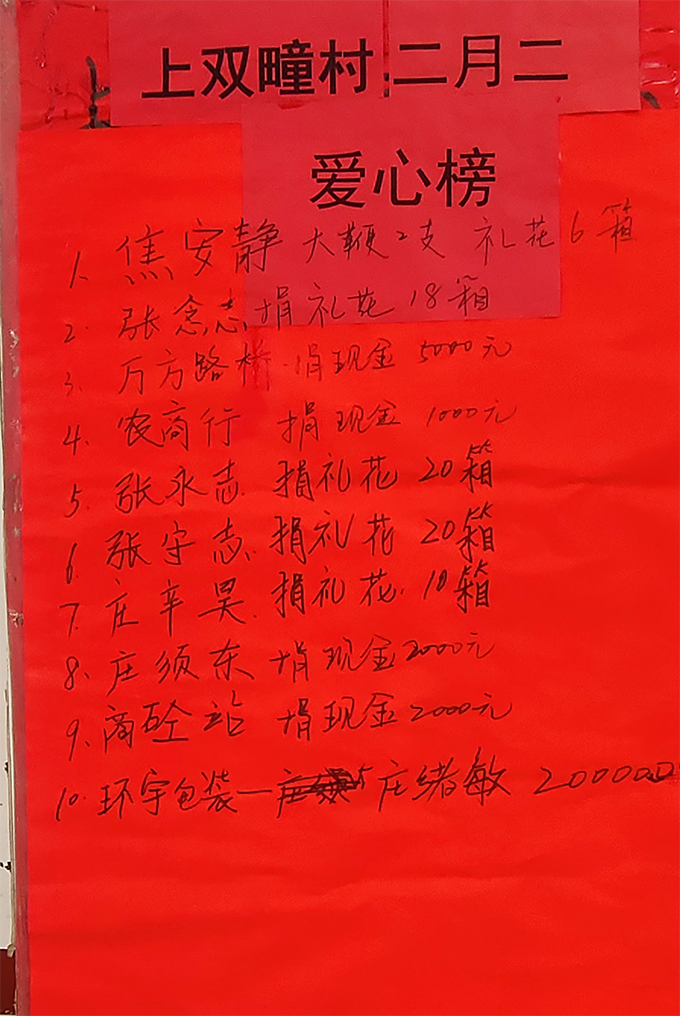 上双疃村二月二
爱心榜
1. 焦安静 大鞭2支 礼花6箱
2. 张念志捐礼花 18箱
3. 万方路桥.捐现金 5000元
4. 农商行 捐现金 1000元
5. 张永志 捐礼花 20箱
6. 张守志 捐礼花 20箱
7. 庄辛昊 捐礼花 10箱
8. 庄须东 捐现金2000元
9. 商砼站 捐现金2000元
10. 环宇包装—庄绪敏 20000.0